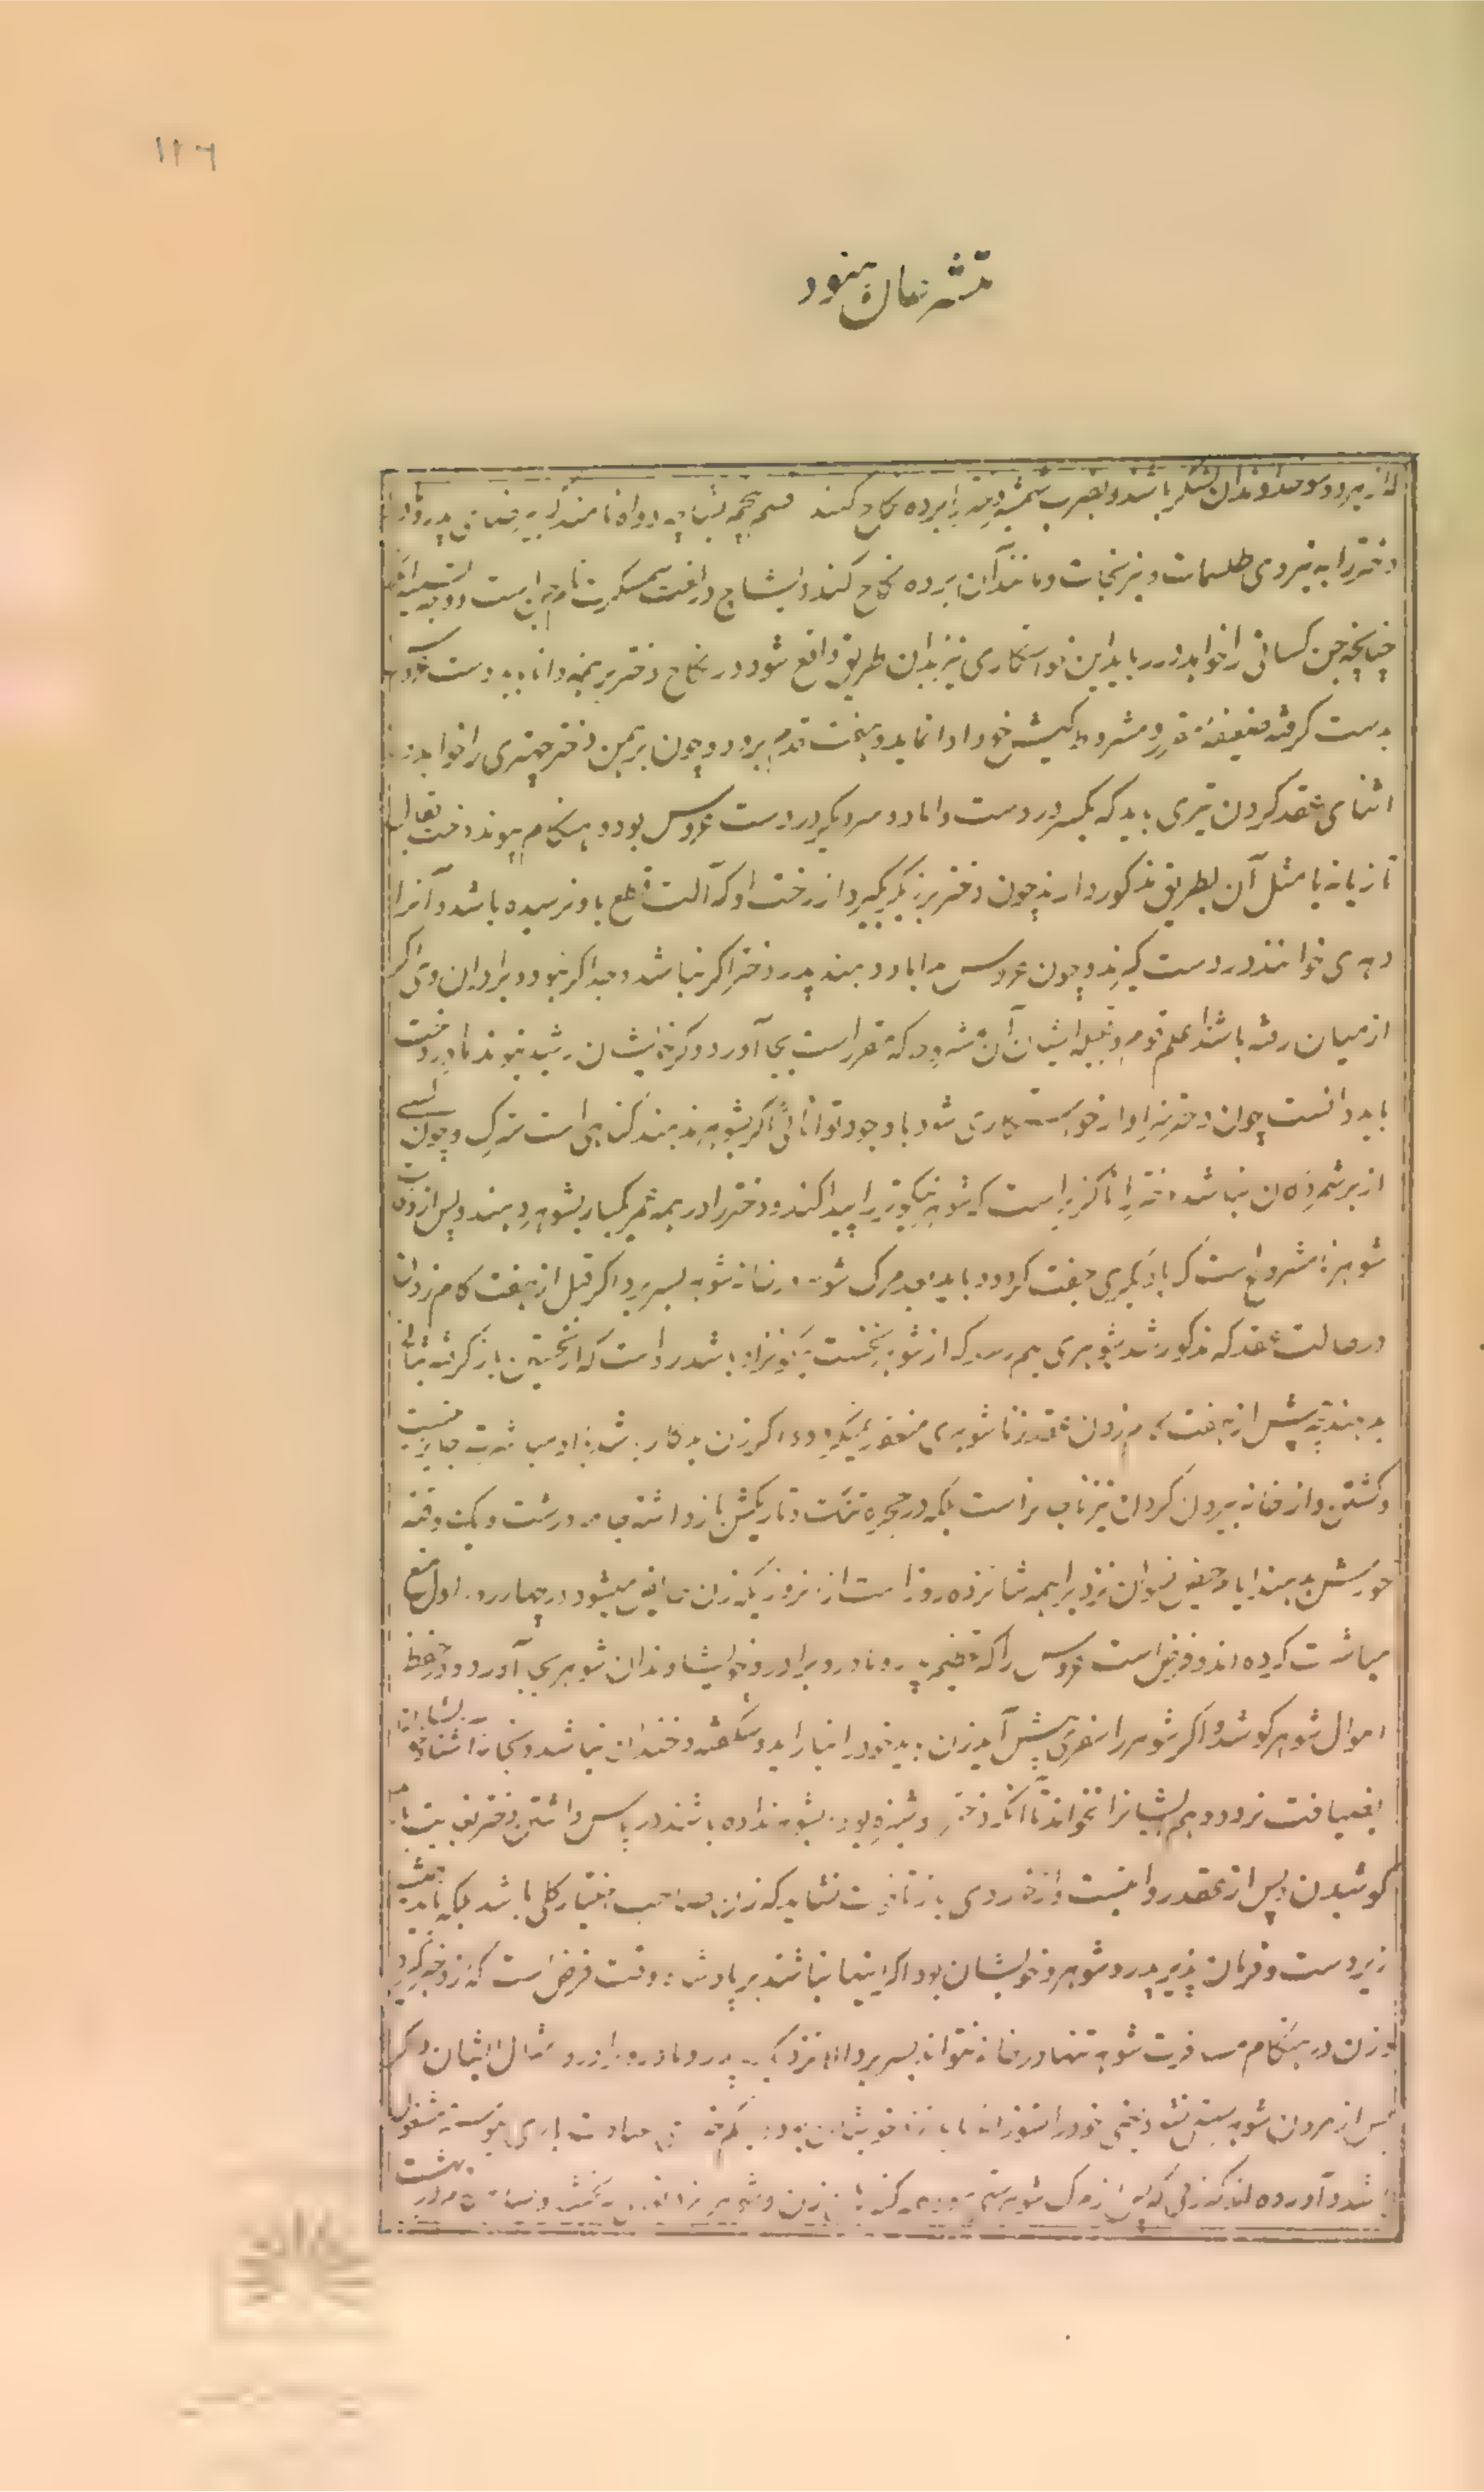 ۱۲۶
متشرعان هنود
که از هر دو سو خداوندان لشکر باشد و بضرب شمشیر دختر را برده نکاح کنند قسم پنجم پشاچه دواه نامند که بی رضای پدر و مادر
دختر را به نیروی طلسمات و نیرنجات و مانند آن برده نکاح کنند و پشاج در لغت سنسکرت نام جنی است و وجه
چنانچه جن کسانی را خواهد در رباید این خواستکاری نیز بدان طریق واقع شود در نکاح دختر برهمنه داناید دست
بدست کرفته مقرر و مشروط کیش خود ادا نماید و هفت قدم برود و چون برهمن دختر چهتری را خواهد در
اثنای عقد کردن تیری باید که یکسر در دست داماد و سر دیکر در دست عروس بود و هنکام پیوند دخت بقال
تازیانه یا مثل آن بطریق مذکور دارند چون دختر برزیکر بکیرد از رخت او که آلت قطع باو نرسیده باشد و آنرا
دهی خوانند در دست کیرند و چون عروس بداماد دهند پدر دختر اکر نباشد و جد اکر نبود و برادران وی اکر
از میان رفته باشند اعلم قوم و قبیله ایشان آن شروط که مقرر است بجا آورد و کرنه ایشان رشید نبوند مادر دخت
باید دانست چون دختر سزاوار خواستکاری شود با وجود توانائی اکر بشوهر ندهند کناهی است بزرک و چون کسی
از بزرکان نباشد دختر را ناکزیر است که شوهر نیکوتر را پیدا کند و دختر را در همه عمر یکبار بشوهر دهند و پس از وفات
شوهر نامشروع است که با دیکری جفت کردد و باید بعد مرک شوهر در خانه شوهر بسر برد اکر قبل از هفت کام زدن
در حالت عقد که مذکور شد شوهری بهم رسد که از شوهر نخست نیکوتر باشد رواست که از نخستین باز کرفته بثانی
بدهند چه پیش از هفت کام زدن عقد زناشوهری منعقد نمیکردد و اکر زن بدکار باشد با او مباشرت جایز نیست
و کشتن و از خانه بیرون کردن نیز ناسزاست بلکه در حجره تنک و تاریکش باز داشته جامه درشت و یک وقته
خورش بدهند ایام حیض نسوان نزد براهمه شانزده روز است از روزیکه زن حایض میشود در چهار روز اول منع
مباشرت کرده اند و فرض است عروس را که تعظیم پدر و مادر و برادر و خویشاوندان شوهر بجای آورد و در حفظ
اموال شوهر کوشد و اکر شوهر را سفری پیش آید زن باید خود را نیاراید و شکفته و خندان نباشد و بخانه آشنا و
بضیافت نرود و هم ایشانرا نخواند تا آنکه دختر دوشیزه بود بشوهر نداده باشند در پاس داشتن دختر
کوشیدن و پس از عقد روا نیست و از خردی باز تا نشاید که زن صاحب اختیار کلی باشد بلکه باید همیشه
زیردست و فرمان پذیر پدر و شوهر و خویشان بود اکر اینها نباشند بر پادشاه وقت فرض است که
و زن در هنکام مسافرت شوهر تنها در خانه نتواند بسر برد الا نزدیک پدر و مادر و برادر و مثال ایشان و اکر
پس از مردن شوهر ستی نشود یعنی خود را نسوزاند باید نزد خویشان بعبادت باری پیوسته مشغول
باشد و آورده اند که زنی که پس از مرک شوهر ستی شود زن و شوهر را بخشد و بهشت